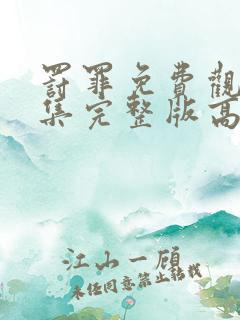 罰罪免費觀
集完整版高
江山一顧
未經同意禁止轉載